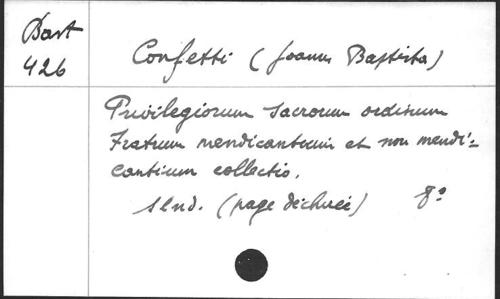 Bart
426
Confetti (Joannes Baptista)
Privilegiorum sacrorum ordinum
Fratrum mendicantium et non mendi-
cantium collectio.
slnd. (page déchirée) 8°